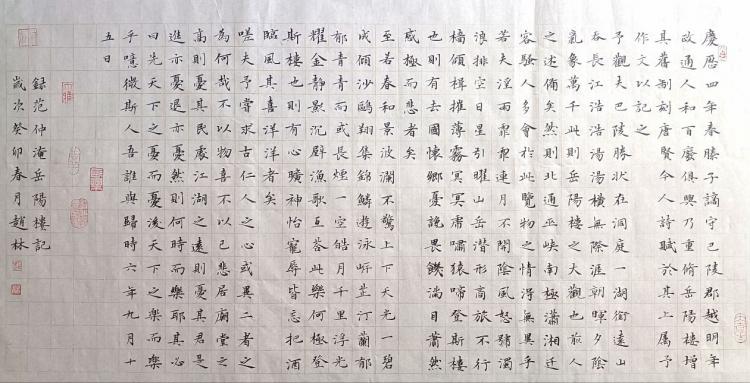 慶曆四年春滕子謫守巴陵郡越明年
政通人和百廢俱興乃重修岳陽樓增
其舊制刻唐賢今人詩賦於其上屬予
作文以記之
予觀夫巴陵勝狀在洞庭一湖銜遠山
吞長江浩浩湯湯橫無際涯朝暉夕陰
氣象萬千此則岳陽樓之大觀也前人
之述備矣然則北通巫峽南極瀟湘遷
客騷人多會於此覽物之情得無異乎
若夫淫雨霏霏連月不開陰風怒號濁
浪排空日星引曜山岳潛形商旅不行
檣傾楫摧薄暮冥冥虎嘯猿啼登斯樓
也則有去國懷鄉憂讒畏譏滿目蕭然
感極而悲者矣
至若春和景波瀾不驚上下天光一碧
萬頃沙鷗翔集錦鱗遊泳岸芷汀蘭郁
郁青青而或長煙一空皓月千里浮光
耀金靜影沉璧漁歌互答此樂何極登
斯樓也則有心曠神怡寵辱皆忘把酒
臨風其喜洋洋者矣
嗟夫予嘗求古仁人之心或異二者之
為何哉不以物喜不以己悲居廟堂之
高則憂其民處江湖之遠則憂其君是
進亦憂退亦憂然則何時而樂耶其必
曰先天下之憂而憂後天下之樂而樂
乎噫微斯人吾誰與歸時六年九月十
五日
録范仲淹岳陽樓記
歲次癸卯春月趙林